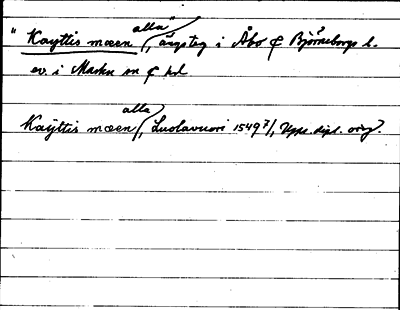 "Kayttis mæen alla", ängsteg i Åbo & Björneborgs l.
ev. i Masku sn & hd
Kaÿttis mæen alla, Luolavuori 1549?/, Upps. dipl. orig.